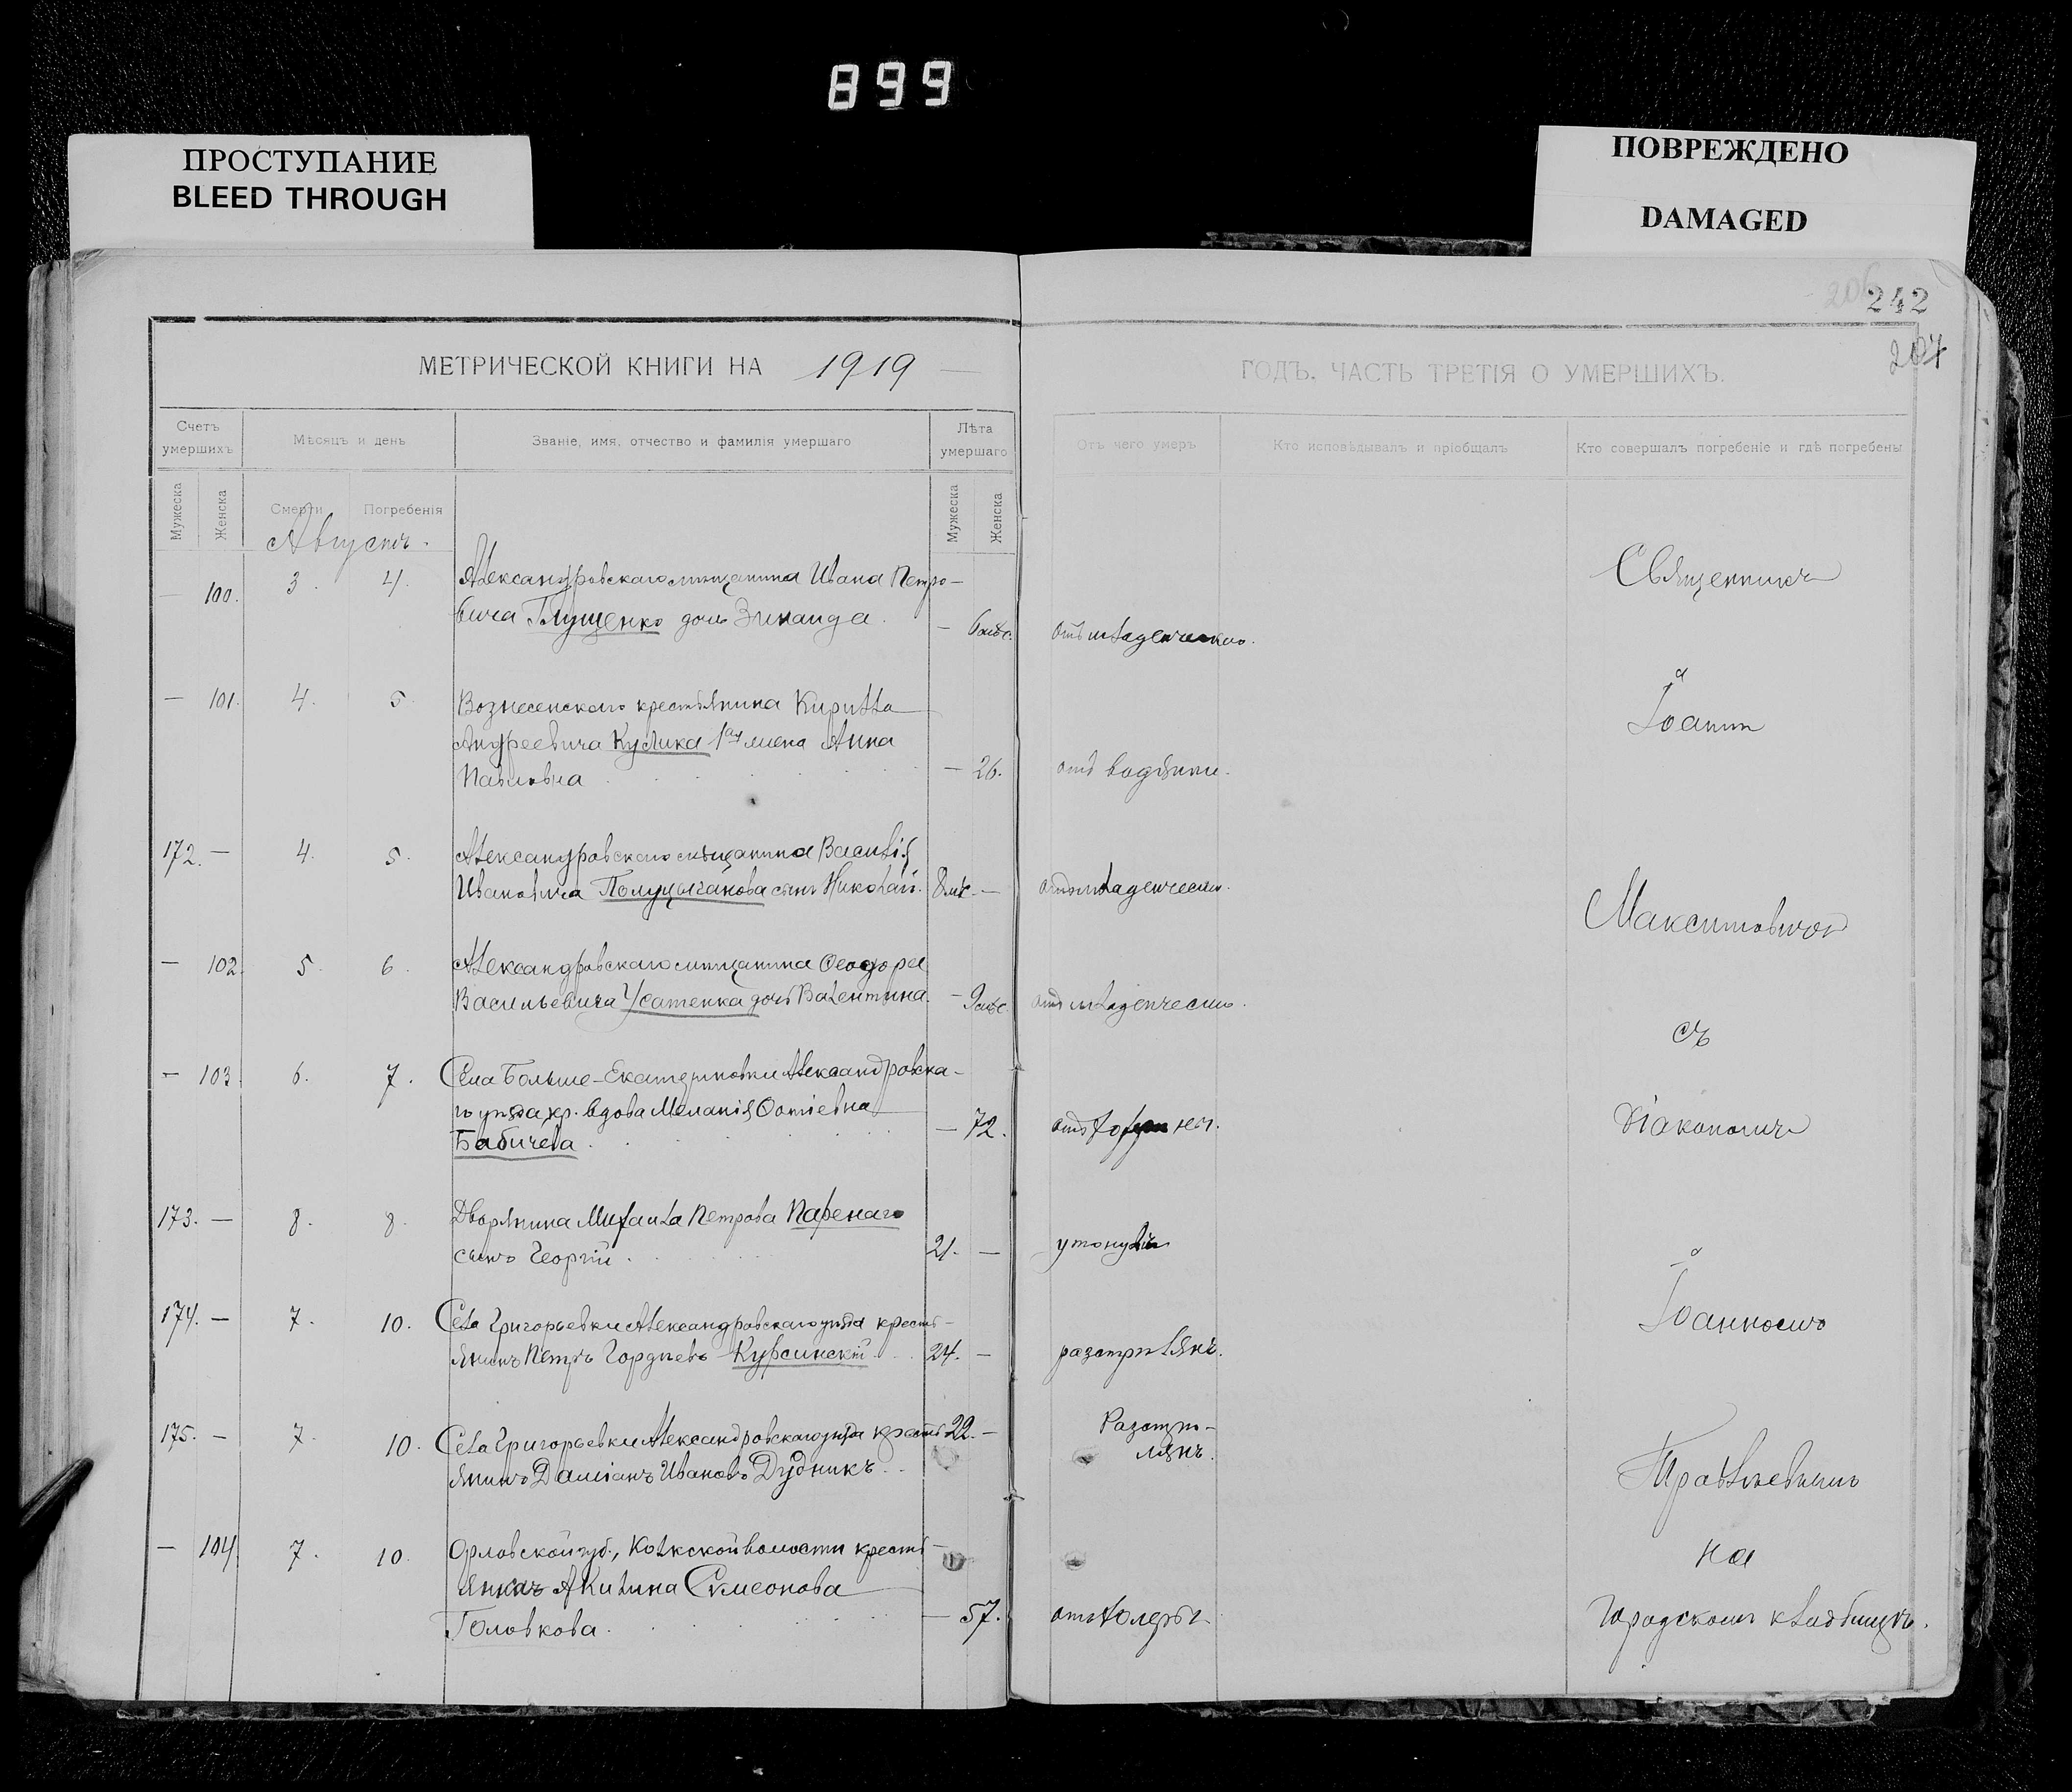 899
ПРОСТУПАНИЕ
BLEED THROUGH
ПОВРЕЖДЕНО
DAMAGED
206
242
МЕТРИЧЕСКОЙ КНИГИ НА 1919
ГОДЪ. ЧАСТЬ ТРЕТІЯ О УМЕРШИХЪ.
Счетъ умершихъ
Мѣсяцъ и день
Званіе, имя, отчество и фамилія умершаго
Лѣта умершаго
Отъ чего умеръ
Кто исповѣдывалъ и пріобщалъ
Кто совершалъ погребеніе и гдѣ погребены
Мужеска
Женска
Смерти
Погребенія
Мужеска
Женска
Августъ.
— 100. 3. 4. Александровскаго мѣщанина Ивана Петро-
вича Глущенко дочь Зинаида. — 6 мѣс. отъ младенческаго.
— 101. 4. 5. Вознесенскаго крестьянина Кирилла
Андреевича Кулика 1ая жена Анна
Павловна — 26. отъ водянки.
172. — 4. 5. Александровскаго мѣщанина Василія
Ивановича Полуцыганова сынъ Николай. 8 мѣс. — отъ младенческ.
— 102. 5. 6. Александровскаго мѣщанина Ѳеодора
Васильевича Усатенка дочь Валентина. — 9 мѣс. отъ младенческ.
— 103. 6. 7. Села Больше-Екатериновки Александровска-
го уѣзда кр. вдова Меланія Ѳотіевна
Бабичева. — 72. отъ
173. — 8. 8. Дворянина Михаила Петрова
сынъ Георгій. 21. — утонулъ
174. — 7. 10. Села Григорьевки Александровскаго уѣзда кресть-
янинъ Петръ Гордіевъ Курсинскій 24. — разстрѣлянъ.
175. — 7. 10. Села Григорьевки Александровскаго уѣзда кресть 22. — Разстрѣ-
янинъ Даміанъ Ивановъ Дудникъ. лянъ.
— 104. 7. 10. Орловской губ., волости кресть-
янка Акилина Симеонова
Головкова. — 57. отъ холеры
Священникъ
Іоаннъ
Максимовичъ
съ
діакономъ
Іоанномъ
на
городскомъ кладбищѣ.